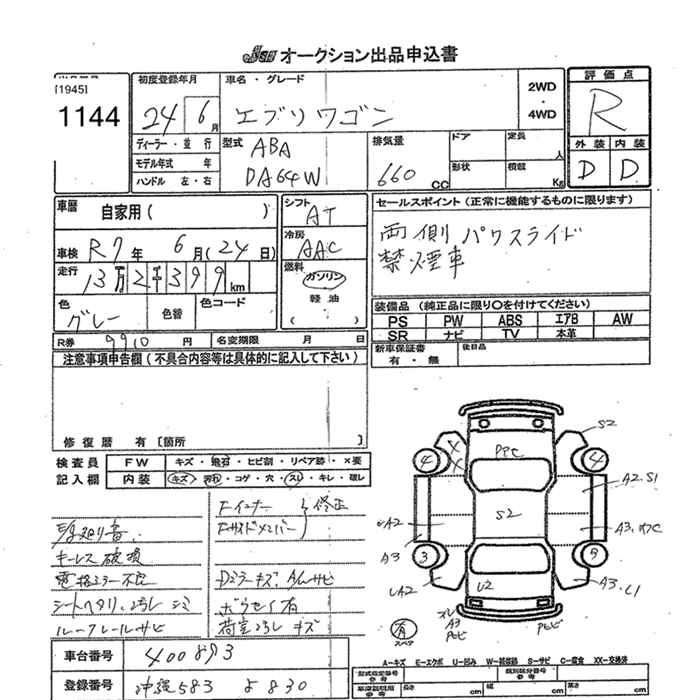 JU オークション出品申込書
[1945]
1144
初度登録年月
24 6月
車名・グレード
エブリワゴン
2WD
・
4WD
評価点
R
外装 内装
D D
ディーラー・並行
モデル年式 年
ハンドル 左・右
型式
ABA
DA64W
排気量
660 CC
ドア
形状
定員 人
積載 Kg
車歴 自家用( )
車検 R7年 6月(24日)
走行 13万2千399km
色 グレー
色替
色コード
シフト AT
冷房 AAC
燃料 ガソリン
軽油
( )
セールスポイント(正常に機能するものに限ります)
両側パワスライド
禁煙車
装備品(純正品に限り○を付けてください)
PS PW ABS エアB AW
SR ナビ TV 本革
新車保証書
有・無
後日品
R券 9910円
名変期限 月 日
注意事項申告欄(不具合内容等は具体的に記入して下さい)
修復歴 有[箇所 ]
検査員
記入欄
FW キズ・飛石・ヒビ割・リペア跡・×要
内装 キズ・汚れ・コゲ・穴・スレ・キレ・破レ
Fインナー
Fサイドメンバー
修正
キーレス破損
電格ミラー不良
シートヘタリ、汚レ シミ
ルーフレールサビ
Dミラーキズ、
ボウセイ有
荷室汚レ キズ
S2
PPC
4 4
A2.S1
S2
A2
A3
A3
3 9
A2
U2
A3
有
スペア
A-キズ E-エクボ U-凹み W-補修跡 S-サビ C-腐食 XX-交換済
車台番号 400893
登録番号 沖縄583 よ830
長さ cm 幅 cm 高さ cm